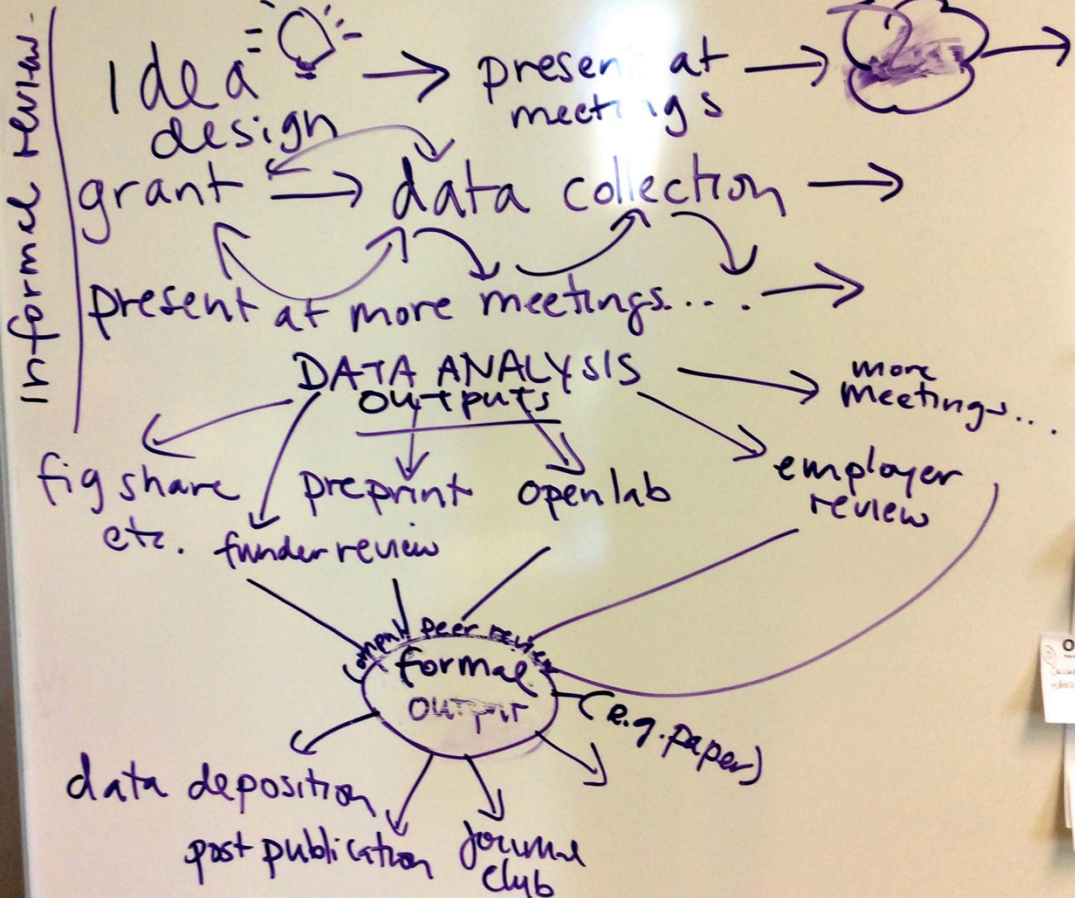 Informal review.
Idea
present at
meetings
design
grant
data collection
present at more meetings....
DATA ANALYSIS
outputs
more
meetings...
figshare
etc.
preprint
open lab
employer
review
funder review
peer review
formal
OUTPUT
(e.g. paper)
data deposition
post publication
journal
club